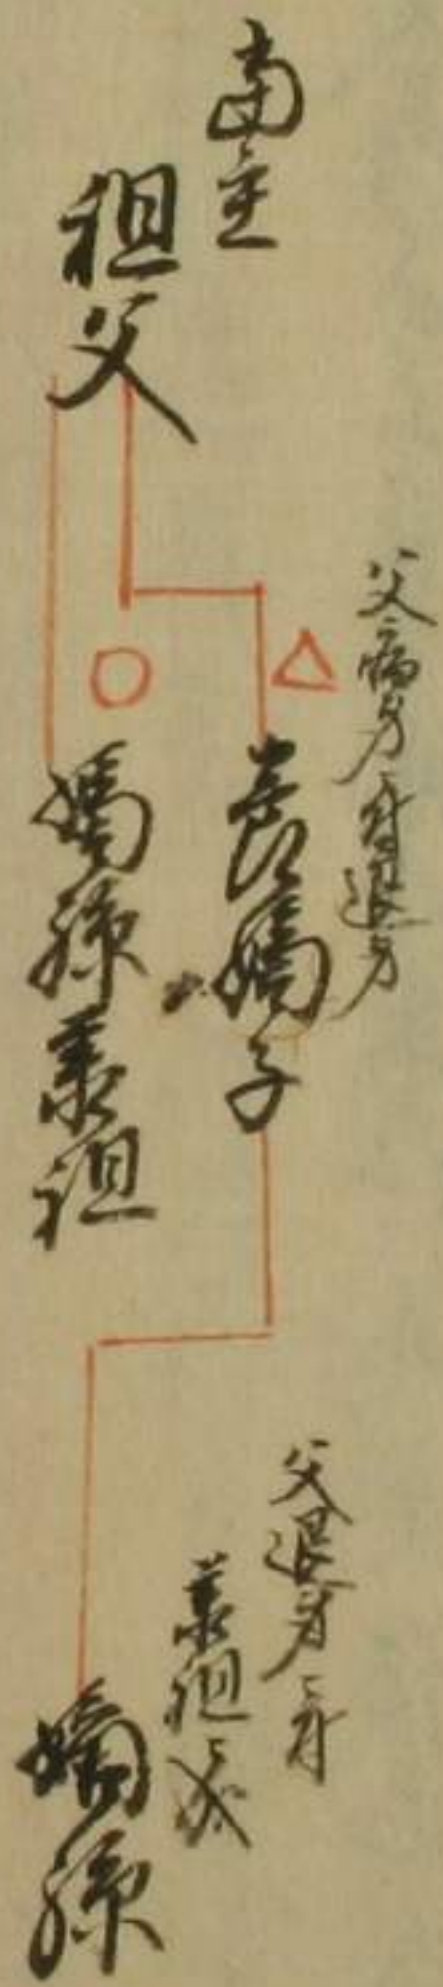 當主
祖父
父ニ病身ニ付退身
長嫡子
嫡孫承祖
父退身ニ付
承祖ニ成
嫡孫